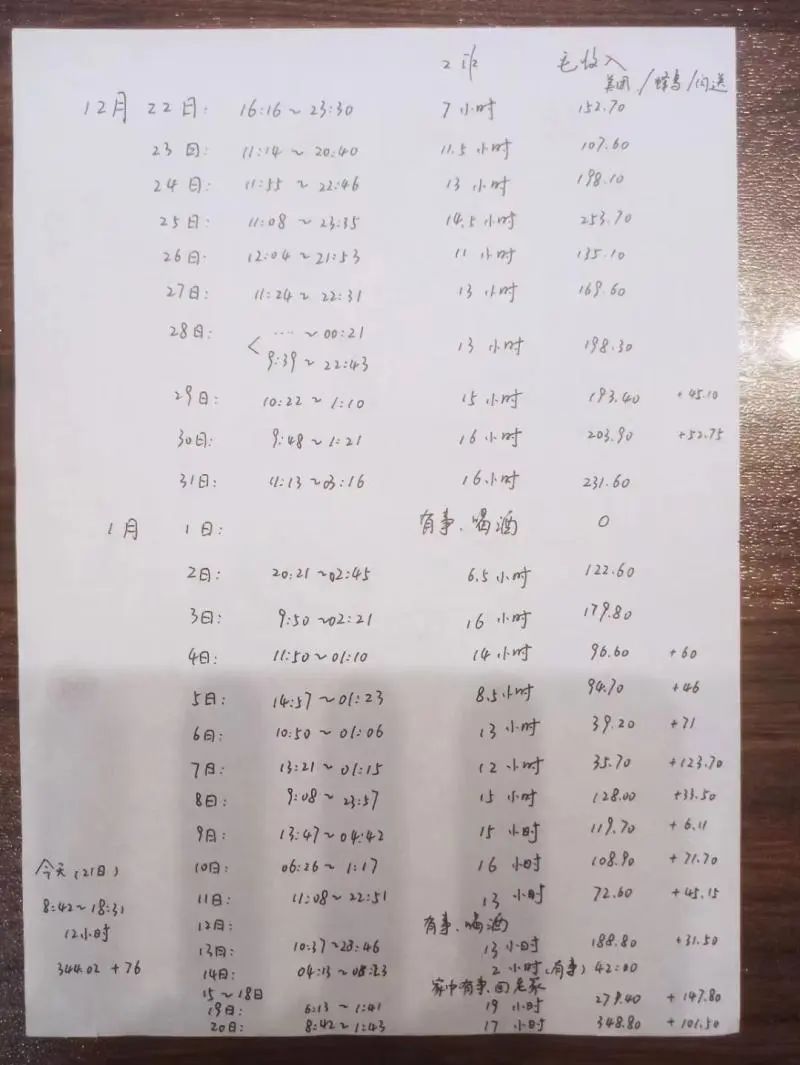 毛收入
美团/蜂鸟/闪送
12月 22日: 16:16~23:30 7小时 152.70
23日: 11:14~20:40 11.5小时 107.60
24日: 11:55~22:46 13小时 198.10
25日: 11:08~23:35 14.5小时 253.70
26日: 12:04~21:53 11小时 135.10
27日: 11:24~22:31 13小时 169.60
28日: < ....~00:21
9:39~22:43 13小时 198.30
29日: 10:22~1:10 15小时 193.40 +45.10
30日: 9:48~1:21 16小时 203.90 +52.75
31日: 11:13~03:16 16小时 231.60
1月 1日: 有事、喝酒 0
2日: 20:21~02:45 6.5小时 122.60
3日: 9:50~02:21 16小时 179.80
4日: 11:50~01:10 14小时 96.60 +60
5日: 14:57~01:23 8.5小时 94.70 +46
6日: 10:50~01:06 13小时 39.20 +71
7日: 13:21~01:15 12小时 35.70 +123.70
8日: 9:08~23:57 15小时 128.00 +33.50
9日: 13:47~04:42 15小时 119.70 +6.11
10日: 06:26~1:17 16小时 108.90 +71.70
11日: 11:08~22:51 13小时 72.60 +45.15
12日: 有事、喝酒
13日: 10:37~23:46 13小时 188.80 +31.50
14日: 04:13~08:23 2小时(有事) 42:00
15~18日 家中有事、回老家
19日: 6:13~1:41 19小时 279.40 +147.80
20日: 8:42~1:43 17小时 348.80 +101.50
今天(21日)
8:42~18:31
12小时
344.02+76